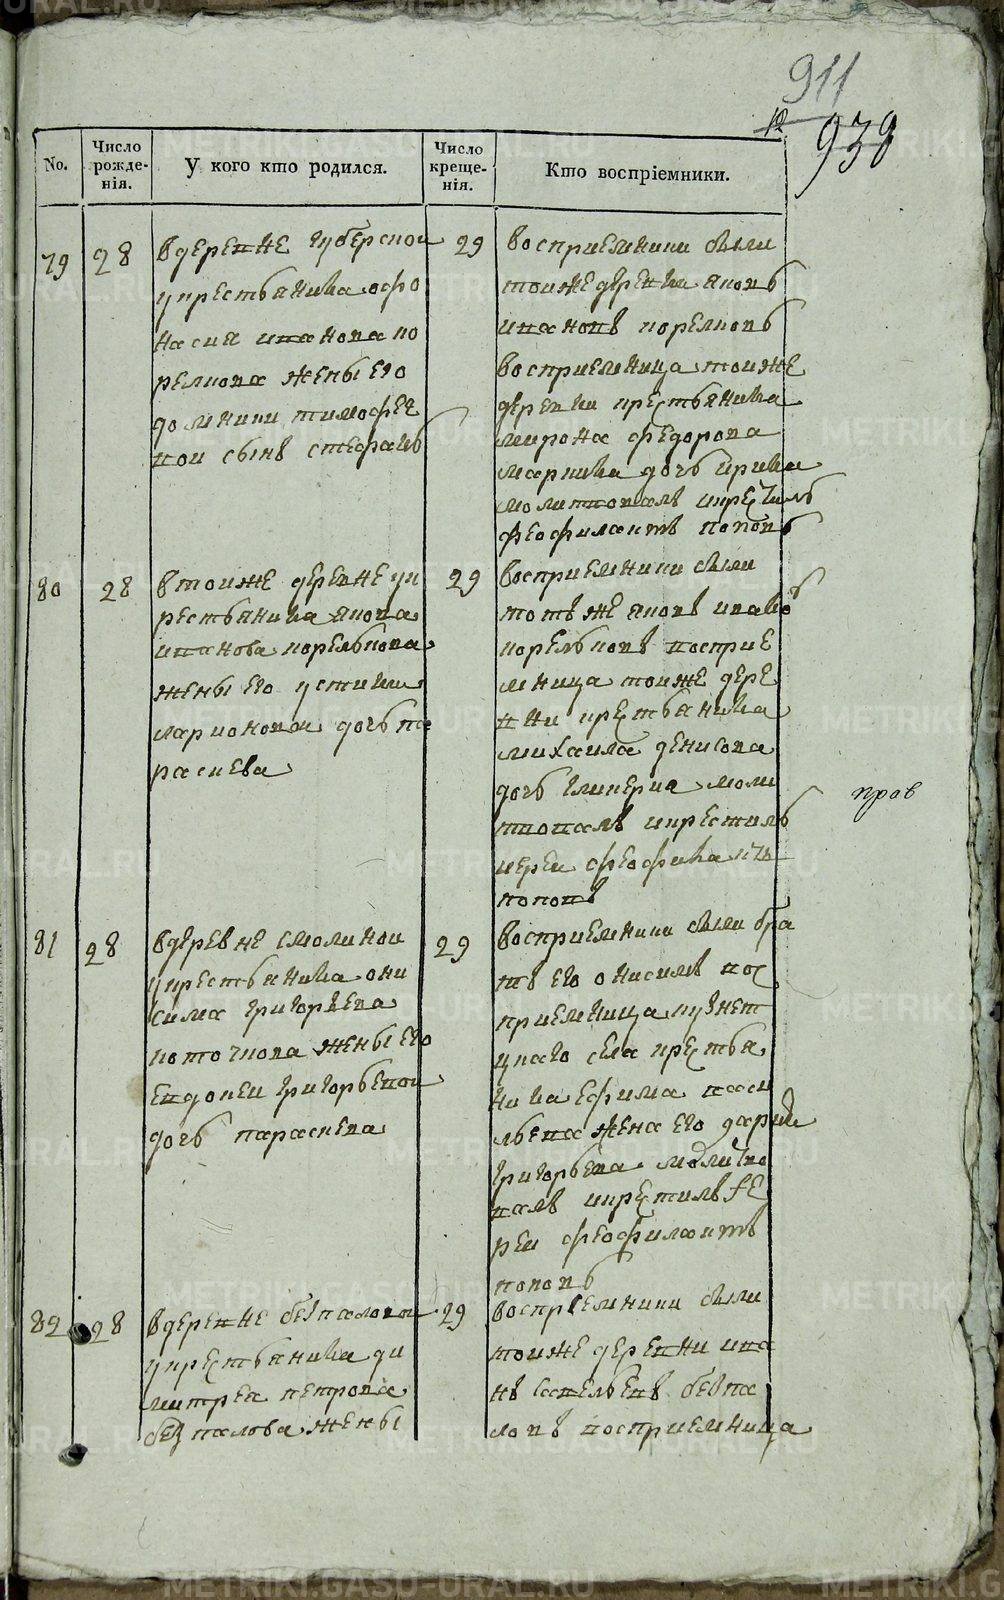 911
938
No.
Число рожде-нія.
У кого кто родился.
Число креще-нія.
Кто воспріемники.
79
28
вдеревне губерской
укрестьянина офо
насия иванова ко
релкова жены его
домники тимофее
вой сынъ стефанъ
29
восприемники были
тоиже деревни яковъ
ивановъ корелковъ
восприемница тоиже
деревни крестьянина
мирона федорова
дочь ирина
молитвовалъ икрестилъ
феофилактъ поповъ
80
28
втоиже деревне ук
рестьянина якова
иванова корелькова
жены его устиньи
ларионовой дочь па
раскева
29
восприемники были
тотъ же яковъ ивановъ
корельковъ восприе
мница тоиже дере
вни крестьянина
михаила денисова
дочь гликерия моли
твовалъ икрестилъ
иереи феофилактъ
поповъ
прав
81
28
вдеревне смолинои
укрестьянина они
сима григорьева
поточкова жены его
евдокеи григорьевой
дочь параскева
29
восприемники были бра
тъ его онисимъ вос
приемница кузнет
цкаго села крестья
нина ефима васи
льева жена его дарья
григорьева молитво
валъ икрестилъ ие
реи феофилактъ
поповъ
82
28
вдеревне безпаловой
укрестьянина ди
митрея петрова
безпалова жены
29
восприемники были
тоиже деревни ива
нъ савельевъ безпа
ловъ восприемница